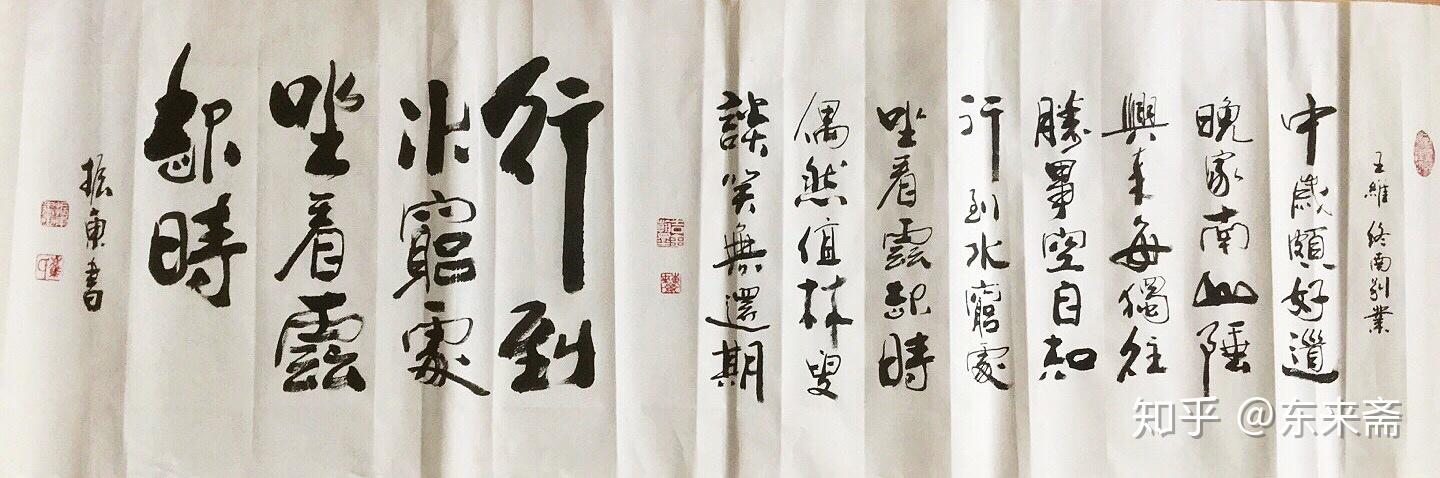 王維 終南别業
中歲頗好道
晚家南山陲
興来每獨往
勝事空自知
行到水窮處
坐看雲起時
偶然值林叟
談笑無還期
行到
水窮處
坐看雲
起時
振東書
知乎 @东来斋